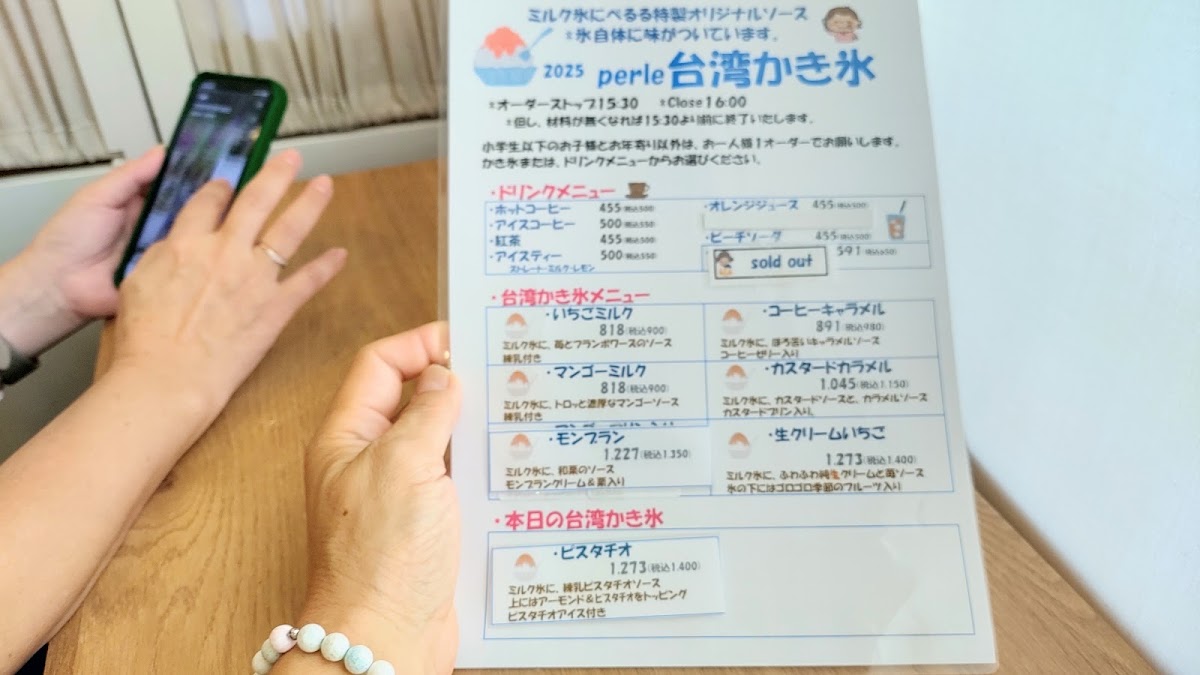 ミルク氷にぺるる特製オリジナルソース
※氷自体に味がついています。
2025 perle台湾かき氷
※オーダーストップ15:30 ※Close16:00
※但し、材料が無くなれば15:30より前に終了いたします。
小学生以下のお子様とお年寄り以外は、お一人様1オーダーでお願いします。
かき氷または、ドリンクメニューからお選びください。
・ドリンクメニュー
・ホットコーヒー 455(税込500)
・アイスコーヒー 500(税込550)
・紅茶 455(税込500)
・アイスティー 500(税込550)
ストレート・ミルク・レモン
・オレンジジュース 455(税込500)
・ピーチソーダ 455(税込500)
591(税込650)
sold out
・台湾かき氷メニュー
・いちごミルク
818(税込900)
ミルク氷に、苺とフランボワーズのソース
練乳付き
・コーヒーキャラメル
891(税込980)
ミルク氷に、ほろ苦いキャラメルソース
コーヒーゼリー入り
・マンゴーミルク
818(税込900)
ミルク氷に、トロッと濃厚なマンゴーソース
練乳付き
・カスタードカラメル
1.045(税込1.150)
ミルク氷に、カスタードソースと、カラメルソース
カスタードプリン入り、
・モンブラン
1.227(税込1.350)
ミルク氷に、和栗のソース
モンブランクリーム&栗入り
・生クリームいちご
1.273(税込1.400)
ミルク氷に、ふわふわ純生クリームと苺ソース
氷の下にはゴロゴロ季節のフルーツ入り
・本日の台湾かき氷
・ピスタチオ
1.273(税込1.400)
ミルク氷に、練乳ピスタチオソース
上にはアーモンド&ピスタチオをトッピング
ピスタチオアイス付き